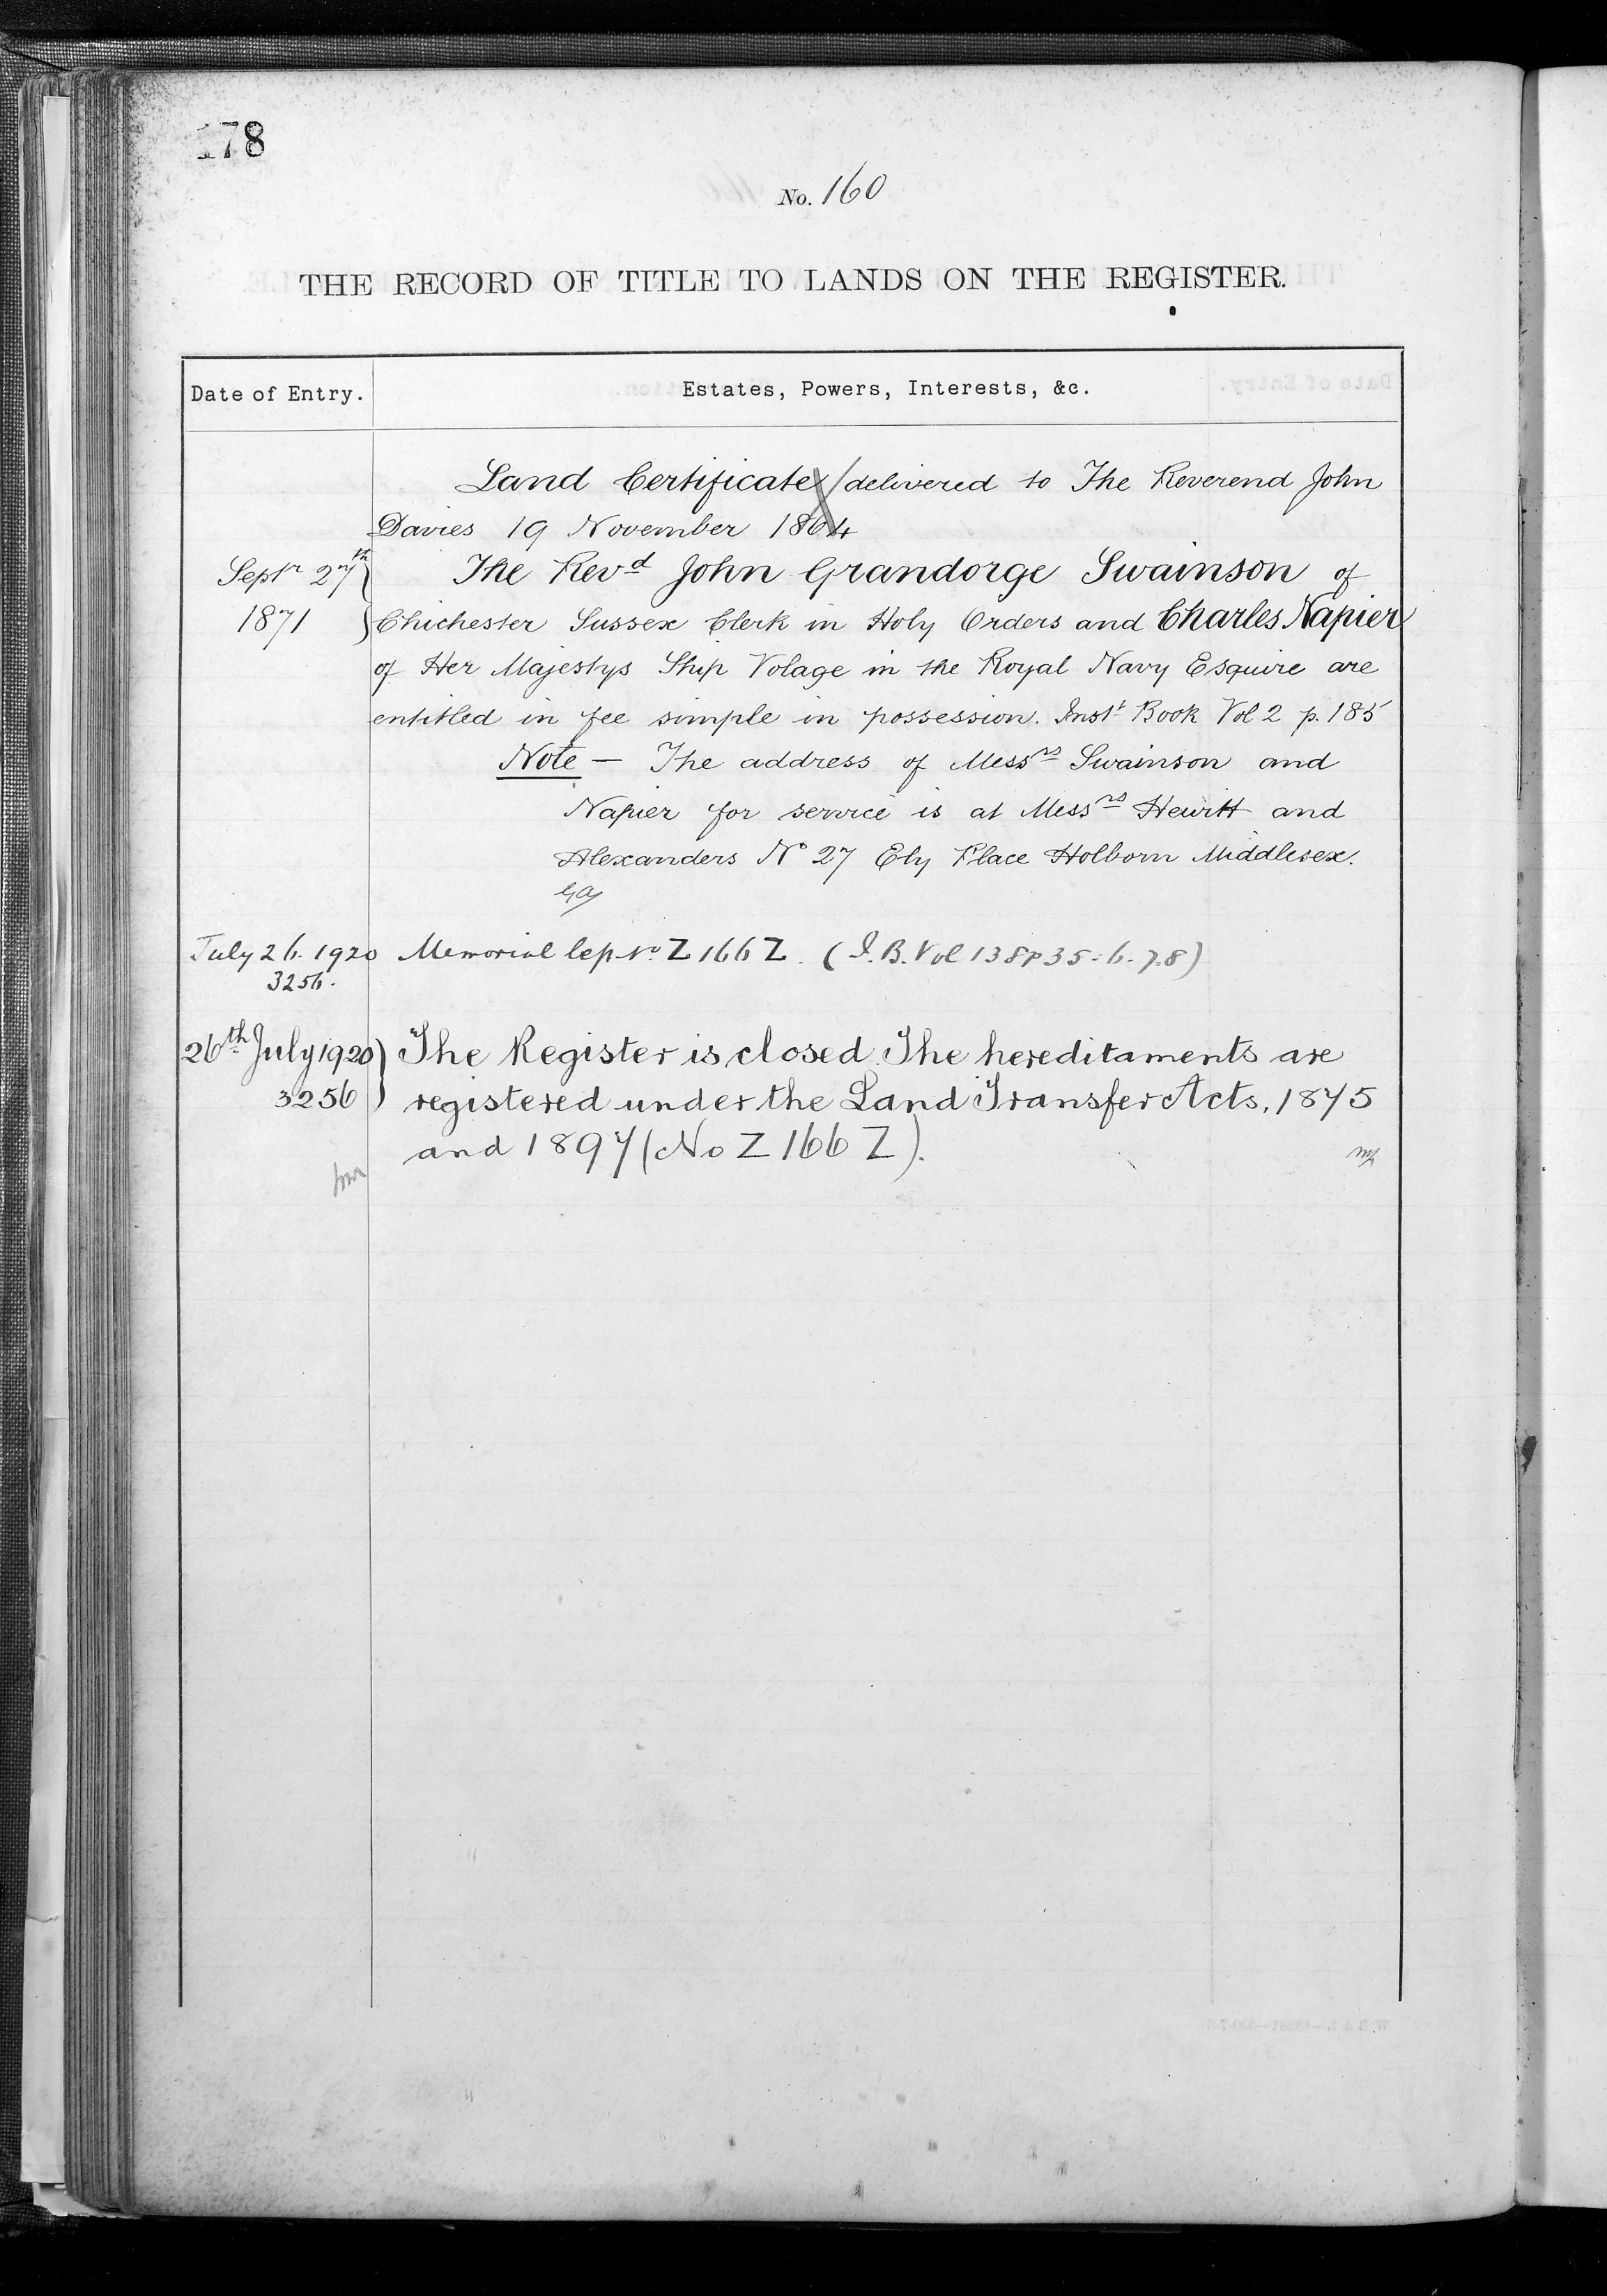 178
No. 160
THE RECORD OF TITLE TO LANDS ON THE REGISTER.
Date of Entry.
Estates, Powers, Interests, &c.
Land Certificate delivered to The Reverend John
Davies 19 November 1864
Septr 27th
1871
The Revd John Grandorge Swainson of
Chichester Sussex Clerk in Holy Orders and Charles Napier
of Her Majestys Ship Volage in the Royal Navy Esquire are
entitled in fee simple in possession. Inst Book Vol 2 p. 185
Note — The address of Messrs Swainson and
Napier for service is at Messrs Hewitt and
Alexanders No 27 Ely Place Holborn Middlesex.
July 26. 1920 Memorial No Z 166 Z. (I.B. Vol 138 p 35.6.7.8)
3256.
26th July 1920 The Register is closed. The hereditaments are
3256 registered under the Land Transfer Acts, 1875
and 1897 (No Z 166 Z).